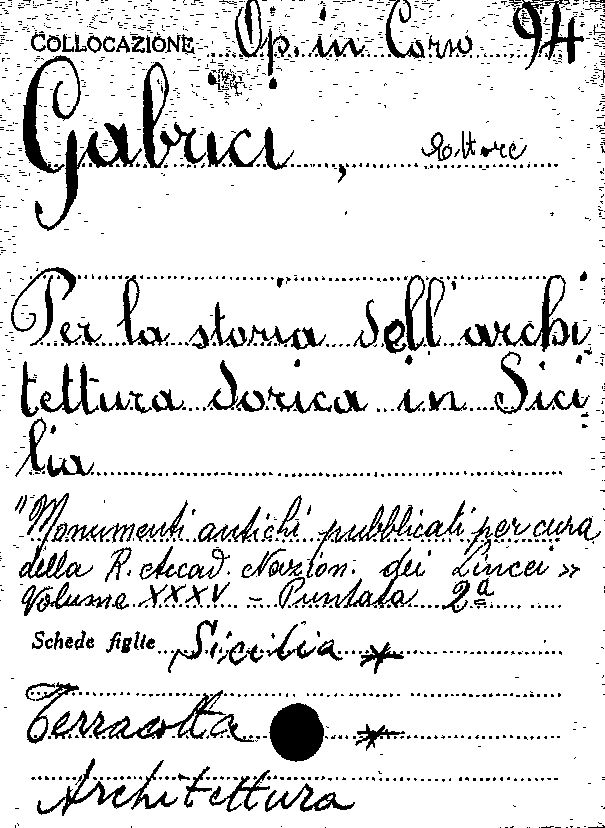 COLLOCAZIONE Op. in Corso 94
Gabrici, Ettore
Per la storia dell'archi
tettura dorica in Sici
lia
"Monumenti antichi pubblicati per cura
della R. Accad. Nazion. dei Lincei »
Volume XXXV - Puntata 2ª
Schede figlie Sicilia *
Terracotta *
Architettura